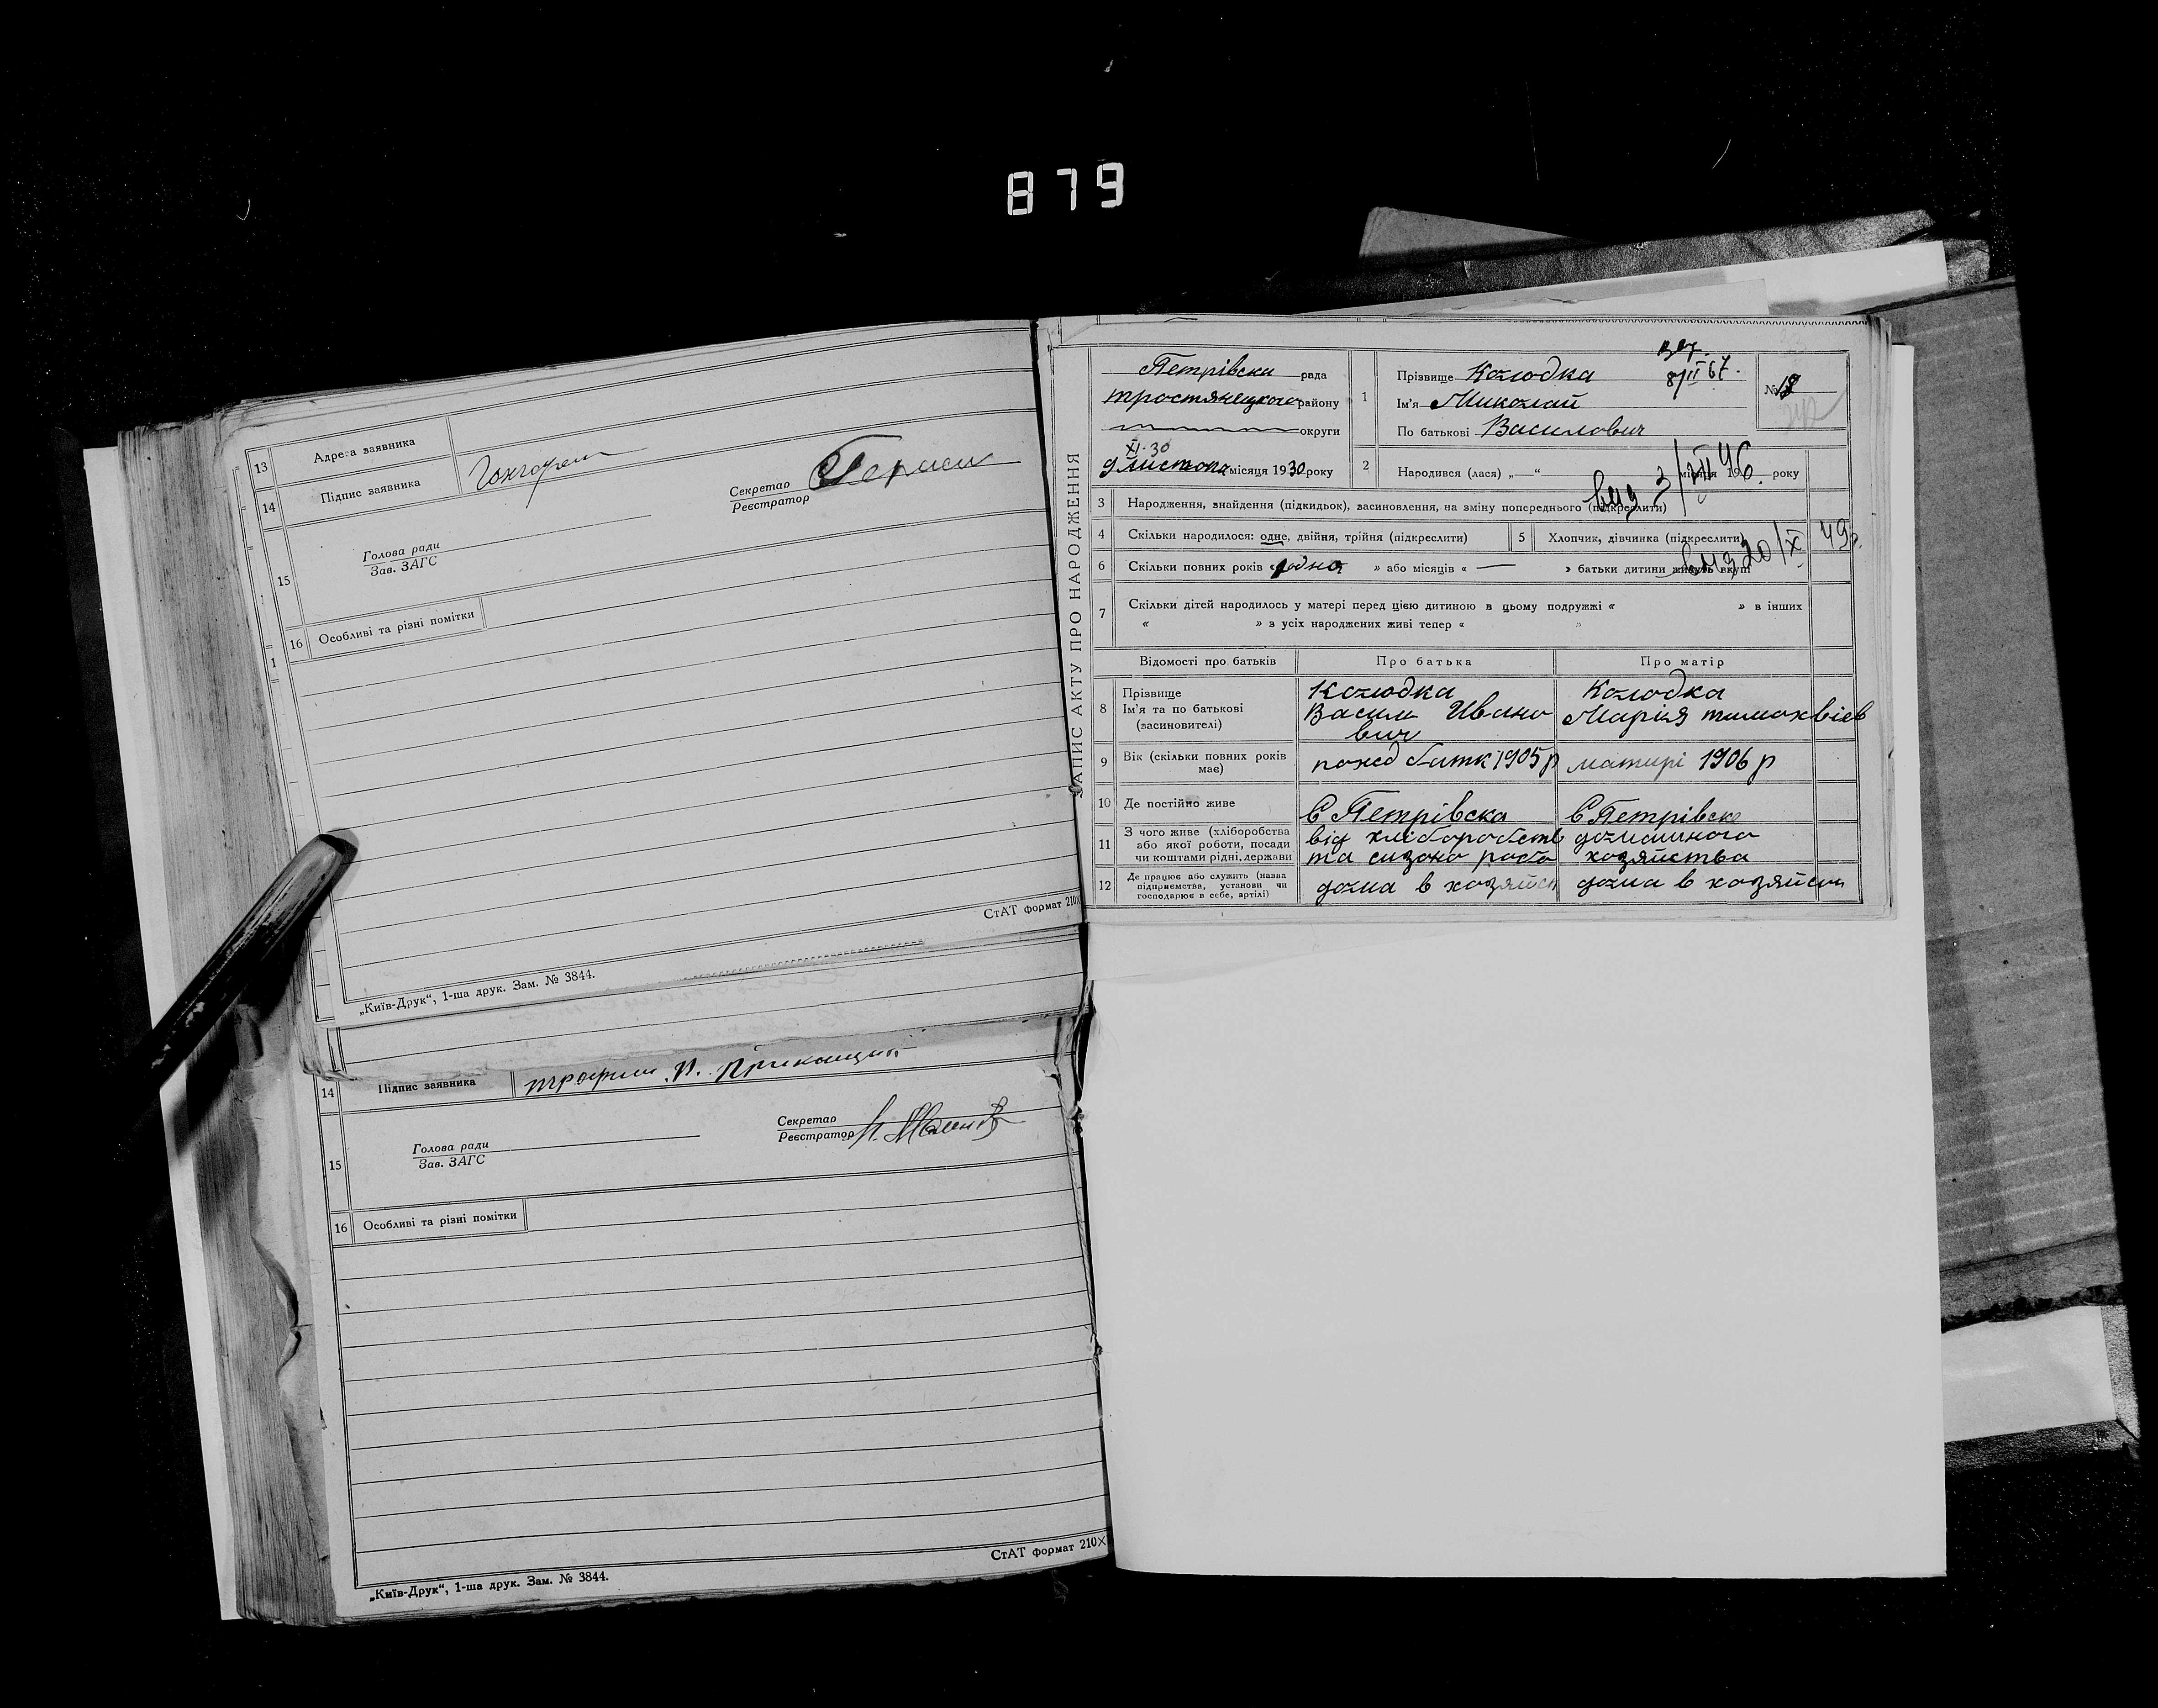 879
13 Адреса заявника
14 Підпис заявника
Секретар
Реєстратор
15 Голова ради
Зав. ЗАГС
16 Особливі та різні помітки
1
СтАТ формат 210×
„Київ-Друк“, 1-ша друк. Зам. № 3844.
14 Підпис заявника
Секретар
Реєстратор
15 Голова ради
Зав. ЗАГС
16 Особливі та різні помітки
СтАТ формат 210×
„Київ-Друк“, 1-ша друк. Зам. № 3844.
ЗАПИС АКТУ ПРО НАРОДЖЕННЯ
Петрівска рада
тростянецкого району
округи
XI-30
9 листопа місяця 1930 року
1 Прізвище Колюдка
8/II 67.
Ім'я Миколай
По батькові Василович
№ 18
2 Народився (лася) „—“ місяця 19 року
3/VII 46.
3 Народження, знайдення (підкидьок), засиновлення, на зміну попереднього (підкреслити)
4 Скільки народилося: одне, двійня, трійня (підкреслити)
5 Хлопчик, дівчинка (підкреслити)
20/X 49р.
6 Скільки повних років « одна » або місяців « — » батьки дитини живуть вкупі
7 Скільки дітей народилось у матері перед цією дитиною в цьому подружжі « » в інших
« » з усіх народжених живі тепер « »
Відомості про батьків Про батька Про матір
8 Прізвище
Ім'я та по батькові
(засиновителі)
Колюдка
Васили Ивано
вич
Колюдка
Марія тимохвієв
9 Вік (скільки повних років має)
1905 р
матирі 1906 р
10 Де постійно живе
С Петрівска
С Петрівск
11 З чого живе (хліборобства
або якої роботи, посади
чи коштами рідні, держави
від хлібоработств
та сизоно робо
домашного
хозяйства
12 Де працює або служить (назва
підприємства, установи чи
господарює в себе, артілі)
дома в хозяйст
дома в хозяйст